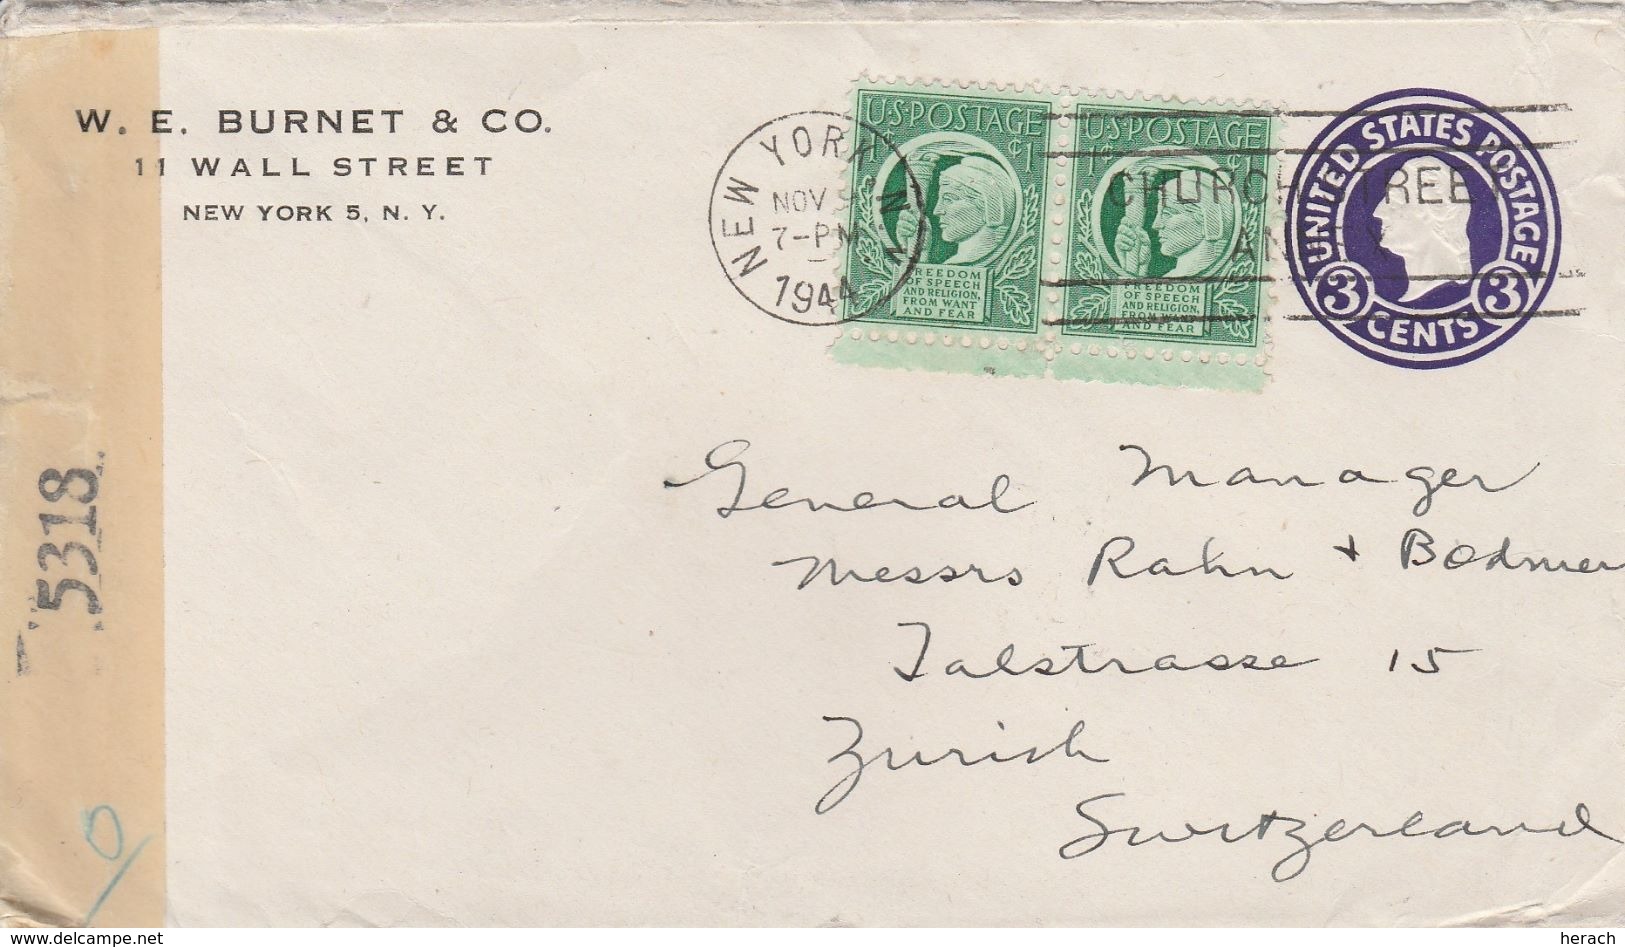 W. E. BURNET & CO.
11 WALL STREET
NEW YORK 5, N. Y.
NEW YORK N.Y.
NOV 9
7-PM
1944
U.S. POSTAGE
1¢ ¢1
FREEDOM
OF SPEECH
AND RELIGION,
FROM WANT
AND FEAR
U.S. POSTAGE
1¢ ¢1
FREEDOM
OF SPEECH
AND RELIGION,
FROM WANT
AND FEAR
CHURCH STREET
ANNEX
UNITED STATES POSTAGE
3 CENTS 3
General Manager
Messrs Rahn + Bodmer
Talstrasse 15
Zurich
Switzerland
5318
www.delcampe.net
herach